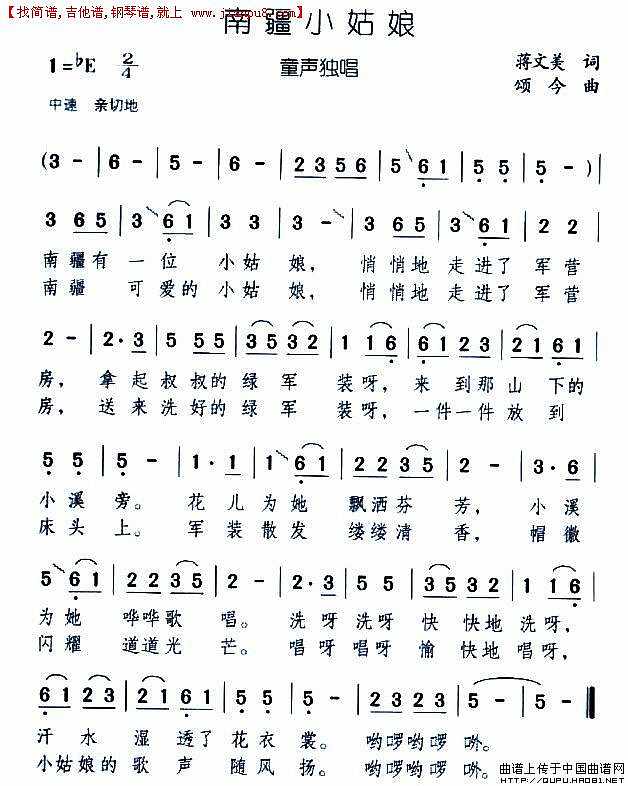 【找简谱,吉他谱,钢琴谱,就上 www.jianpu8.com】
南疆小姑娘
1=♭E 2/4
童声独唱
蒋文美 词
颂今 曲
中速 亲切地
(3 - | 6 - | 5 - | 6 - | 2 3 5 6 | 5 6 1 | 5 5 | 5 - )|
3 6 5 | 3 6 1 | 3 3 | 3 - | 3 6 5 | 5 6 1 | 2 2 |
南疆有一位 小姑娘, 悄悄地走进了军营
南疆 可爱的小姑娘, 悄悄地走进了军营
2 - | 2·3 | 5 5 5 | 3 5 3 2 | 1 1 6 | 6 1 2 3 | 2 1 6 1 |
房, 拿起叔叔的绿军 装呀, 来到那山下的
房, 送来洗好的绿军 装呀, 一件一件放到
5 5 | 5 - | 1·1 | 1 6 1 | 2 2 | 2 - | 3·6 |
小溪旁。 花儿为她飘洒芬芳, 小溪
床头上。 军装散发缕缕清香, 帽徽
5 6 1 | 2 2 3 5 | 2 - | 2·3 | 5 5 | 3 5 3 2 | 1 1 6 |
为她 哗哗歌唱。 洗呀洗呀快快地洗呀,
闪耀 道道光芒。 唱呀唱呀愉快地唱呀,
6 1 2 3 | 2 1 6 1 | 5 5 | 5 - | 2 3 2 3 | 5 - | 5 - ‖
汗水湿透了花衣裳。 哟啰哟啰哟。
小姑娘的歌声随风扬。 哟啰哟啰哟。
曲谱上传于中国曲谱网
HTTP://QUPU.HAO81.NET